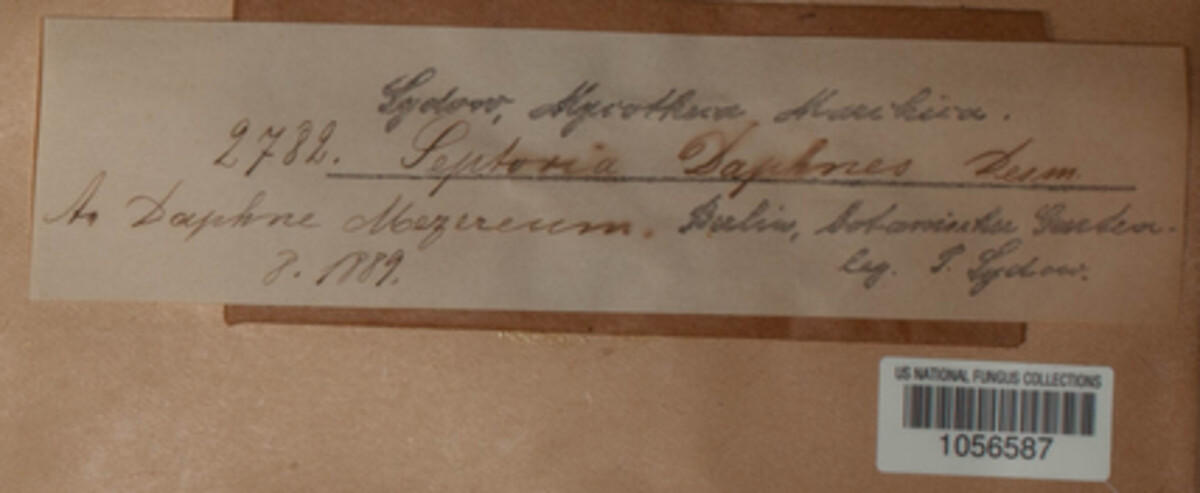 Sydow, Mycotheca Marchica.
2782. Septoria Daphnes Desm.
An Daphne Mezereum. Berlin, botanischer Garten.
8. 1889. leg. P. Sydow.
US NATIONAL FUNGUS COLLECTIONS
1056587